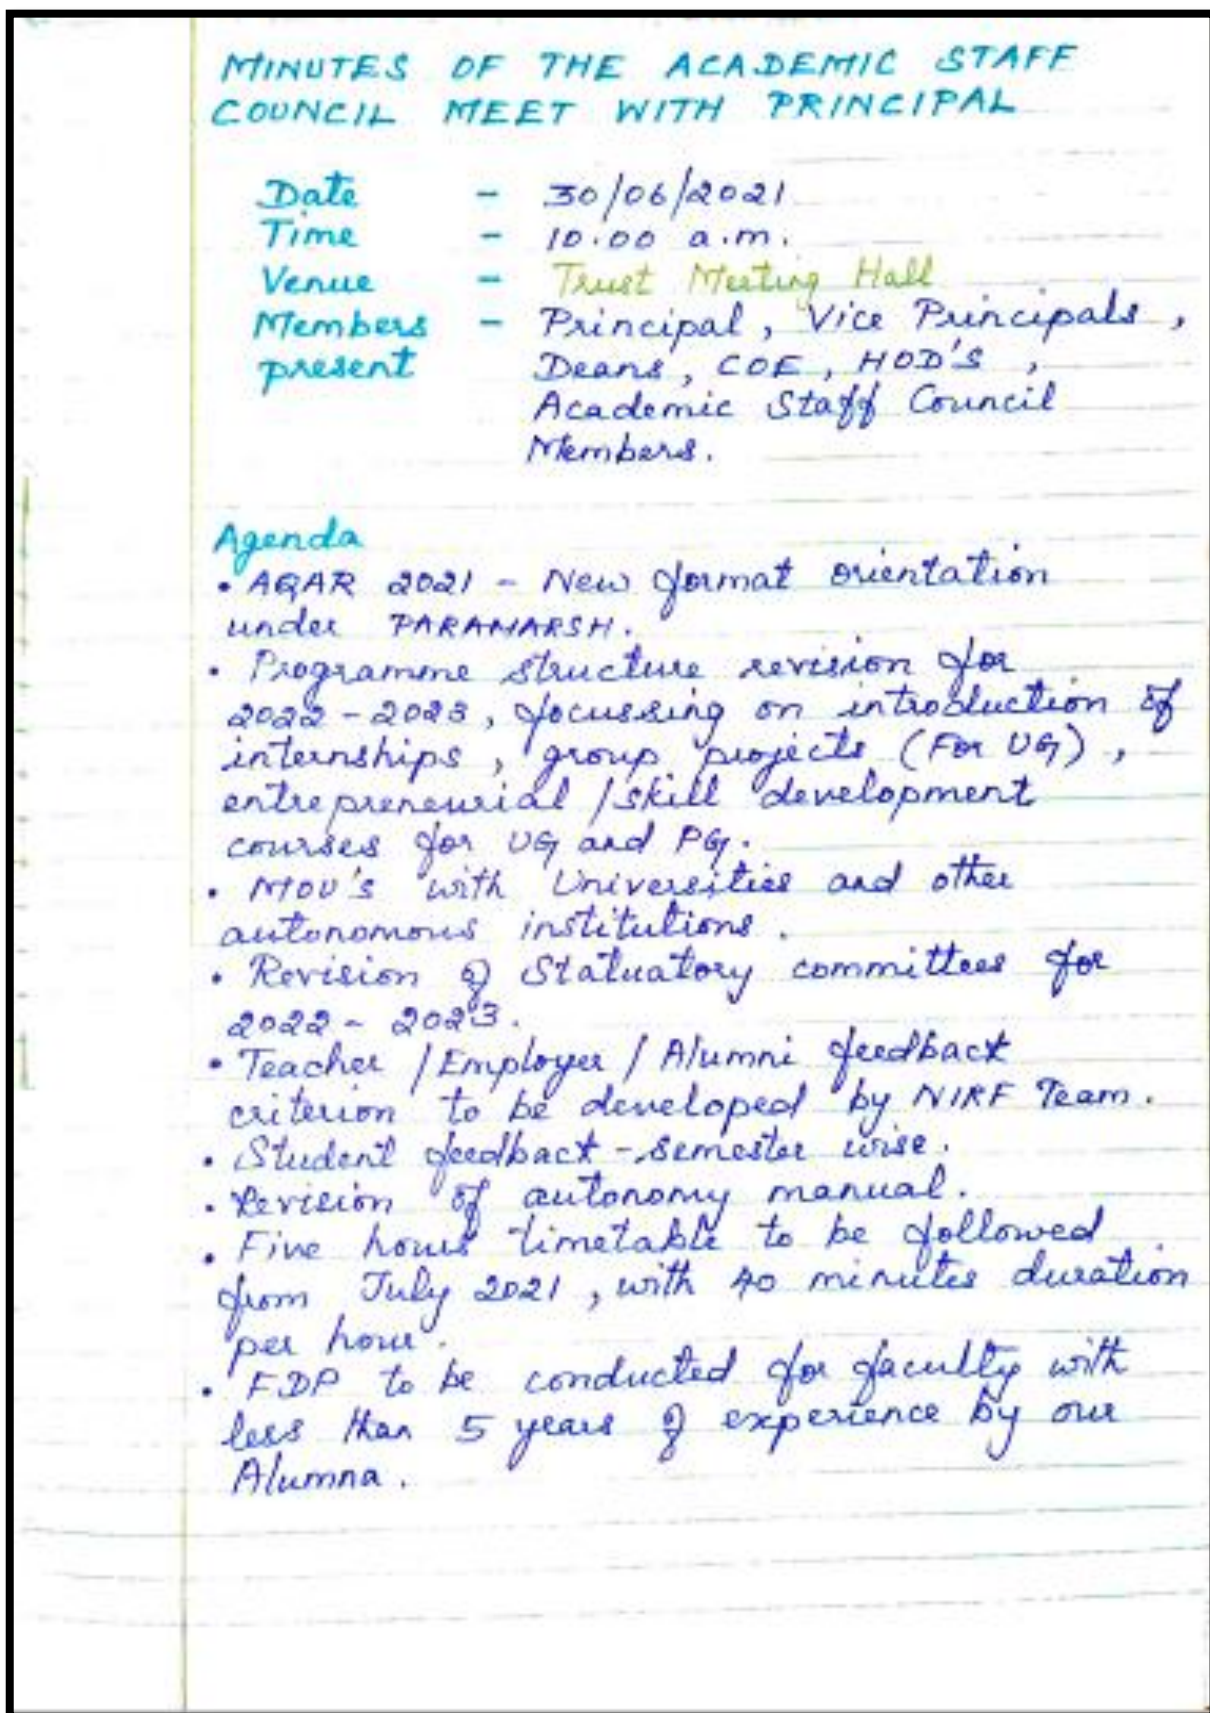 MINUTES OF THE ACADEMIC STAFF
COUNCIL MEET WITH PRINCIPAL
Date - 30/06/2021
Time - 10.00 a.m.
Venue - Trust Meeting Hall
Members - Principal, Vice Principals,
present Deans, COE, HOD'S,
Academic Staff Council
Members.
Agenda
• AQAR 2021 - New format orientation
under PARAMARSH.
• Programme structure revision for
2022-2023, focussing on introduction of
internships, group projects (For UG),
entrepreneurial /skill development
courses for UG and PG.
• MOU's with Universities and other
autonomous institutions.
• Revision of Statuatory committees for
2022-2023.
• Teacher / Employer / Alumni feedback
criterion to be developed by NIRF Team.
• Student feedback - semester wise.
• Revision of autonomy manual.
• Five hours timetable to be followed
from July 2021, with 40 minutes duration
per hour.
• FDP to be conducted for faculty with
less than 5 years of experience by our
Alumna.